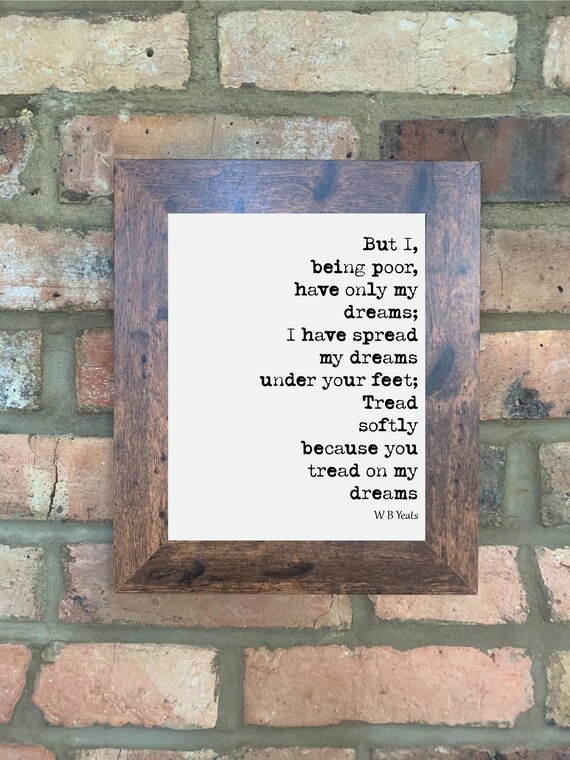 But I,
being poor,
have only my
dreams;
I have spread
my dreams
under your feet;
Tread
softly
because you
tread on my
dreams
W B Yeats